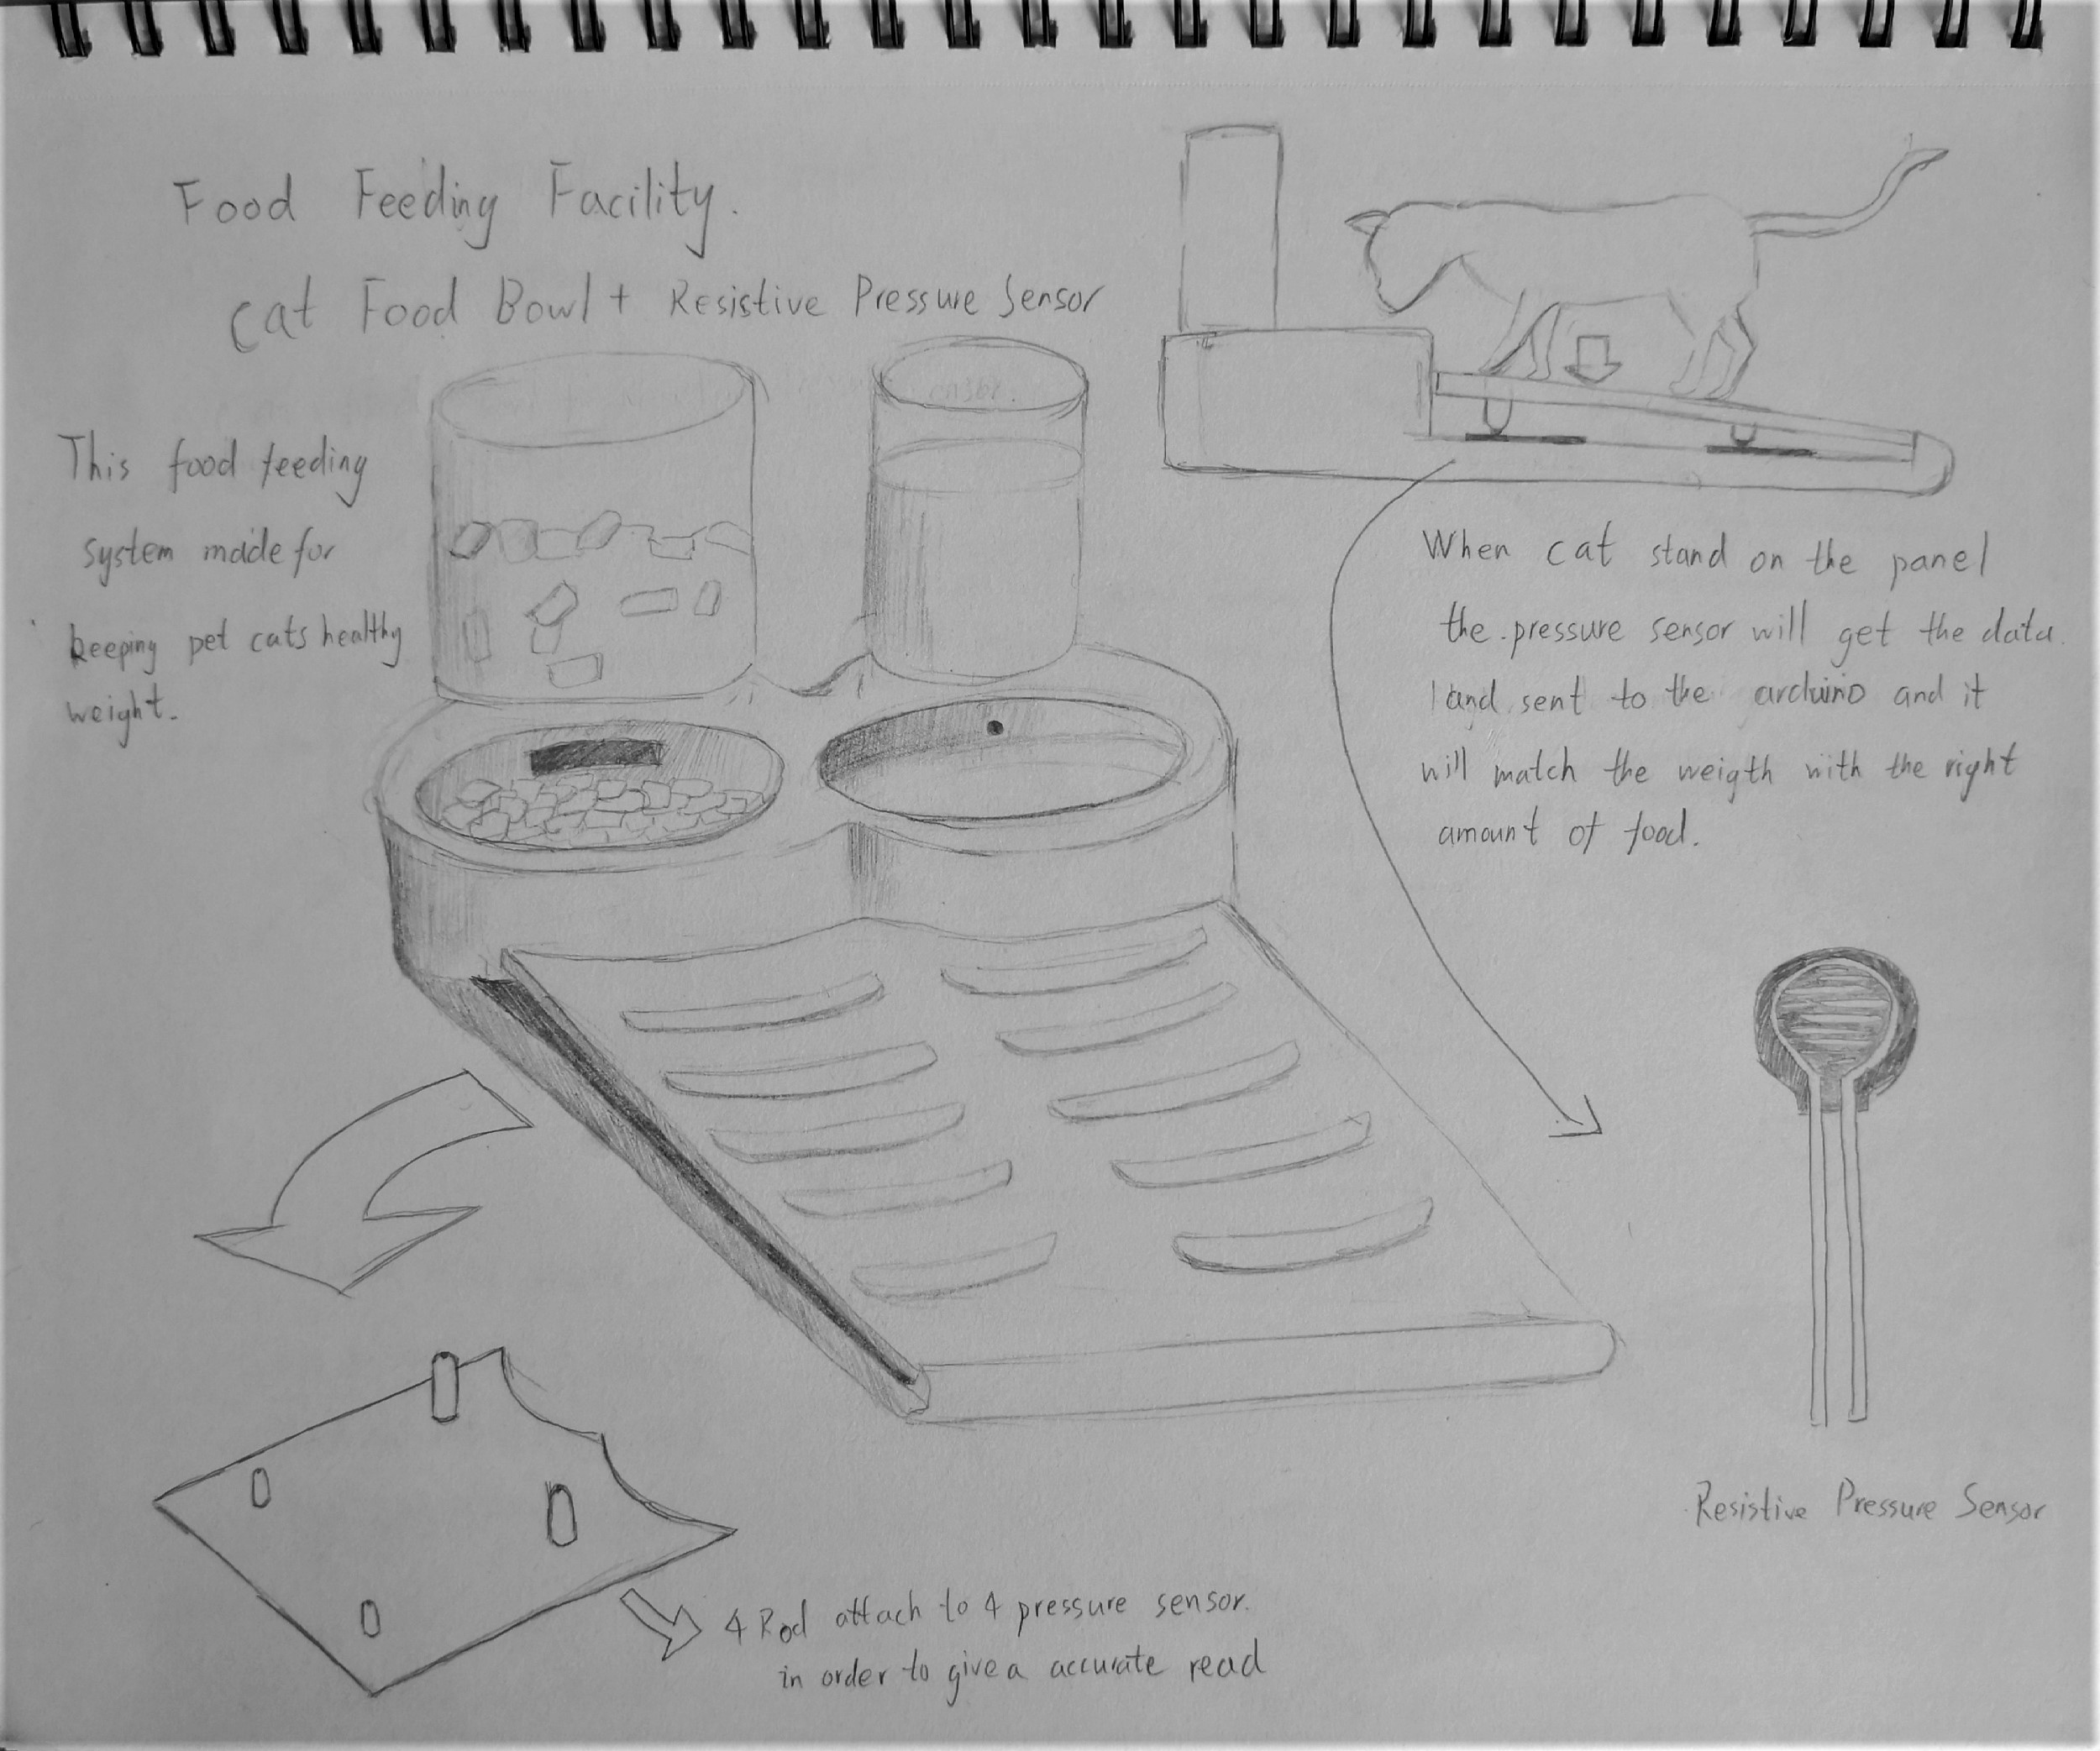 Food Feeding Facility.
Cat Food Bowl + Resistive Pressure Sensor
This food feeding
system made for
keeping pet cats healthy
weight.
When cat stand on the panel
the pressure sensor will get the data.
and sent to the arduino and it
will match the weigth with the right
amount of food.
Resistive Pressure Sensor
4 Rod attach to 4 pressure sensor.
in order to give a accurate read